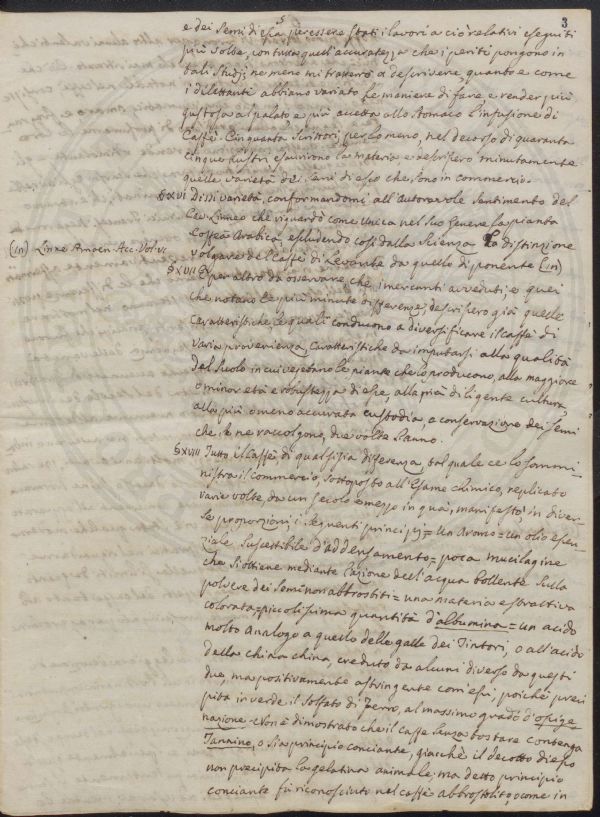 3
e dei Semi di essa per essere stati i lavori a ciò relativi eseguiti
più volte, con tutta quell'accuratezza che i periti pongono in
tali Studj; ne meno mi tratterrò a descrivere, quanto e come
i dilettanti abbiano variato le maniere di fare e render più
gustosa al palato e più accetta allo stomaco l'infusione di
Caffè. Cinquanta Scrittori, per lo meno, nel decorso di quaranta
cinque lustri esaurirono la materia e descrissero minutamente
quelle varietà dei semi di esso che sono in commercio.
§ XVI Dissi varietà, conformandomi all'autorevole sentimento del
Cel. Linneo che riguardò come Unica nel suo Genere la pianta
Coffea Arabica escludendo così dalla Scienza la distinzione
(III) Linne Amoen. Acc. Vol. VI
volgare del Caffè di Levante da quello di ponente (III)
§ XVII È per altro da osservare che i mercanti avveduti, e quei
che notano le più minute differenze, descrissero già quelle
caratteristiche le quali conducono a diversificare il caffè di
varia provenienza. Caratteristiche da imputarsi alla qualità
del suolo in cui vegetano le piante che lo producono, alla maggiore
o minor età e robustezza di esse, alla più di ligente cultura,
alla più o meno accurata custodia, e conservazione dei semi
che se ne raccolgono, due volte l'anno.
§ XVIII Tutto il Caffè, di qualsisia differenza, tal quale ce lo sommi-
nistra il commercio, sottoposto all'Esame chimico, replicato
varie volte, da un secolo e mezzo in quà, manifestò in diver-
se proporzioni i seguenti principj = Un Aroma = un olio essen-
ziale suscettibile d'addensamento = poca mucilagine
che si ottiene mediante l'azione dell'acqua bollente sulla
polvere dei semi non abbrostiti = una materia estrattiva
colorata = piccolissima quantità d'albumina = un acido
molto analogo a quello delle galle dei Tintori, o all'acido
della china china, creduto da alcuni diverso da questi
due, ma positivamente astringente com'essi, poichè preci
pita in verde il Solfato di ferro, al massimo grado d'ossige
nazione. Non è dimostrato che il caffè senza tostare contenga
Tannino, o sia principio conciante, giacchè il decotto di esso
non precipita la gelatina animale; ma detto principio
conciante fù riconosciuto nel caffè abbrostolito, o come in